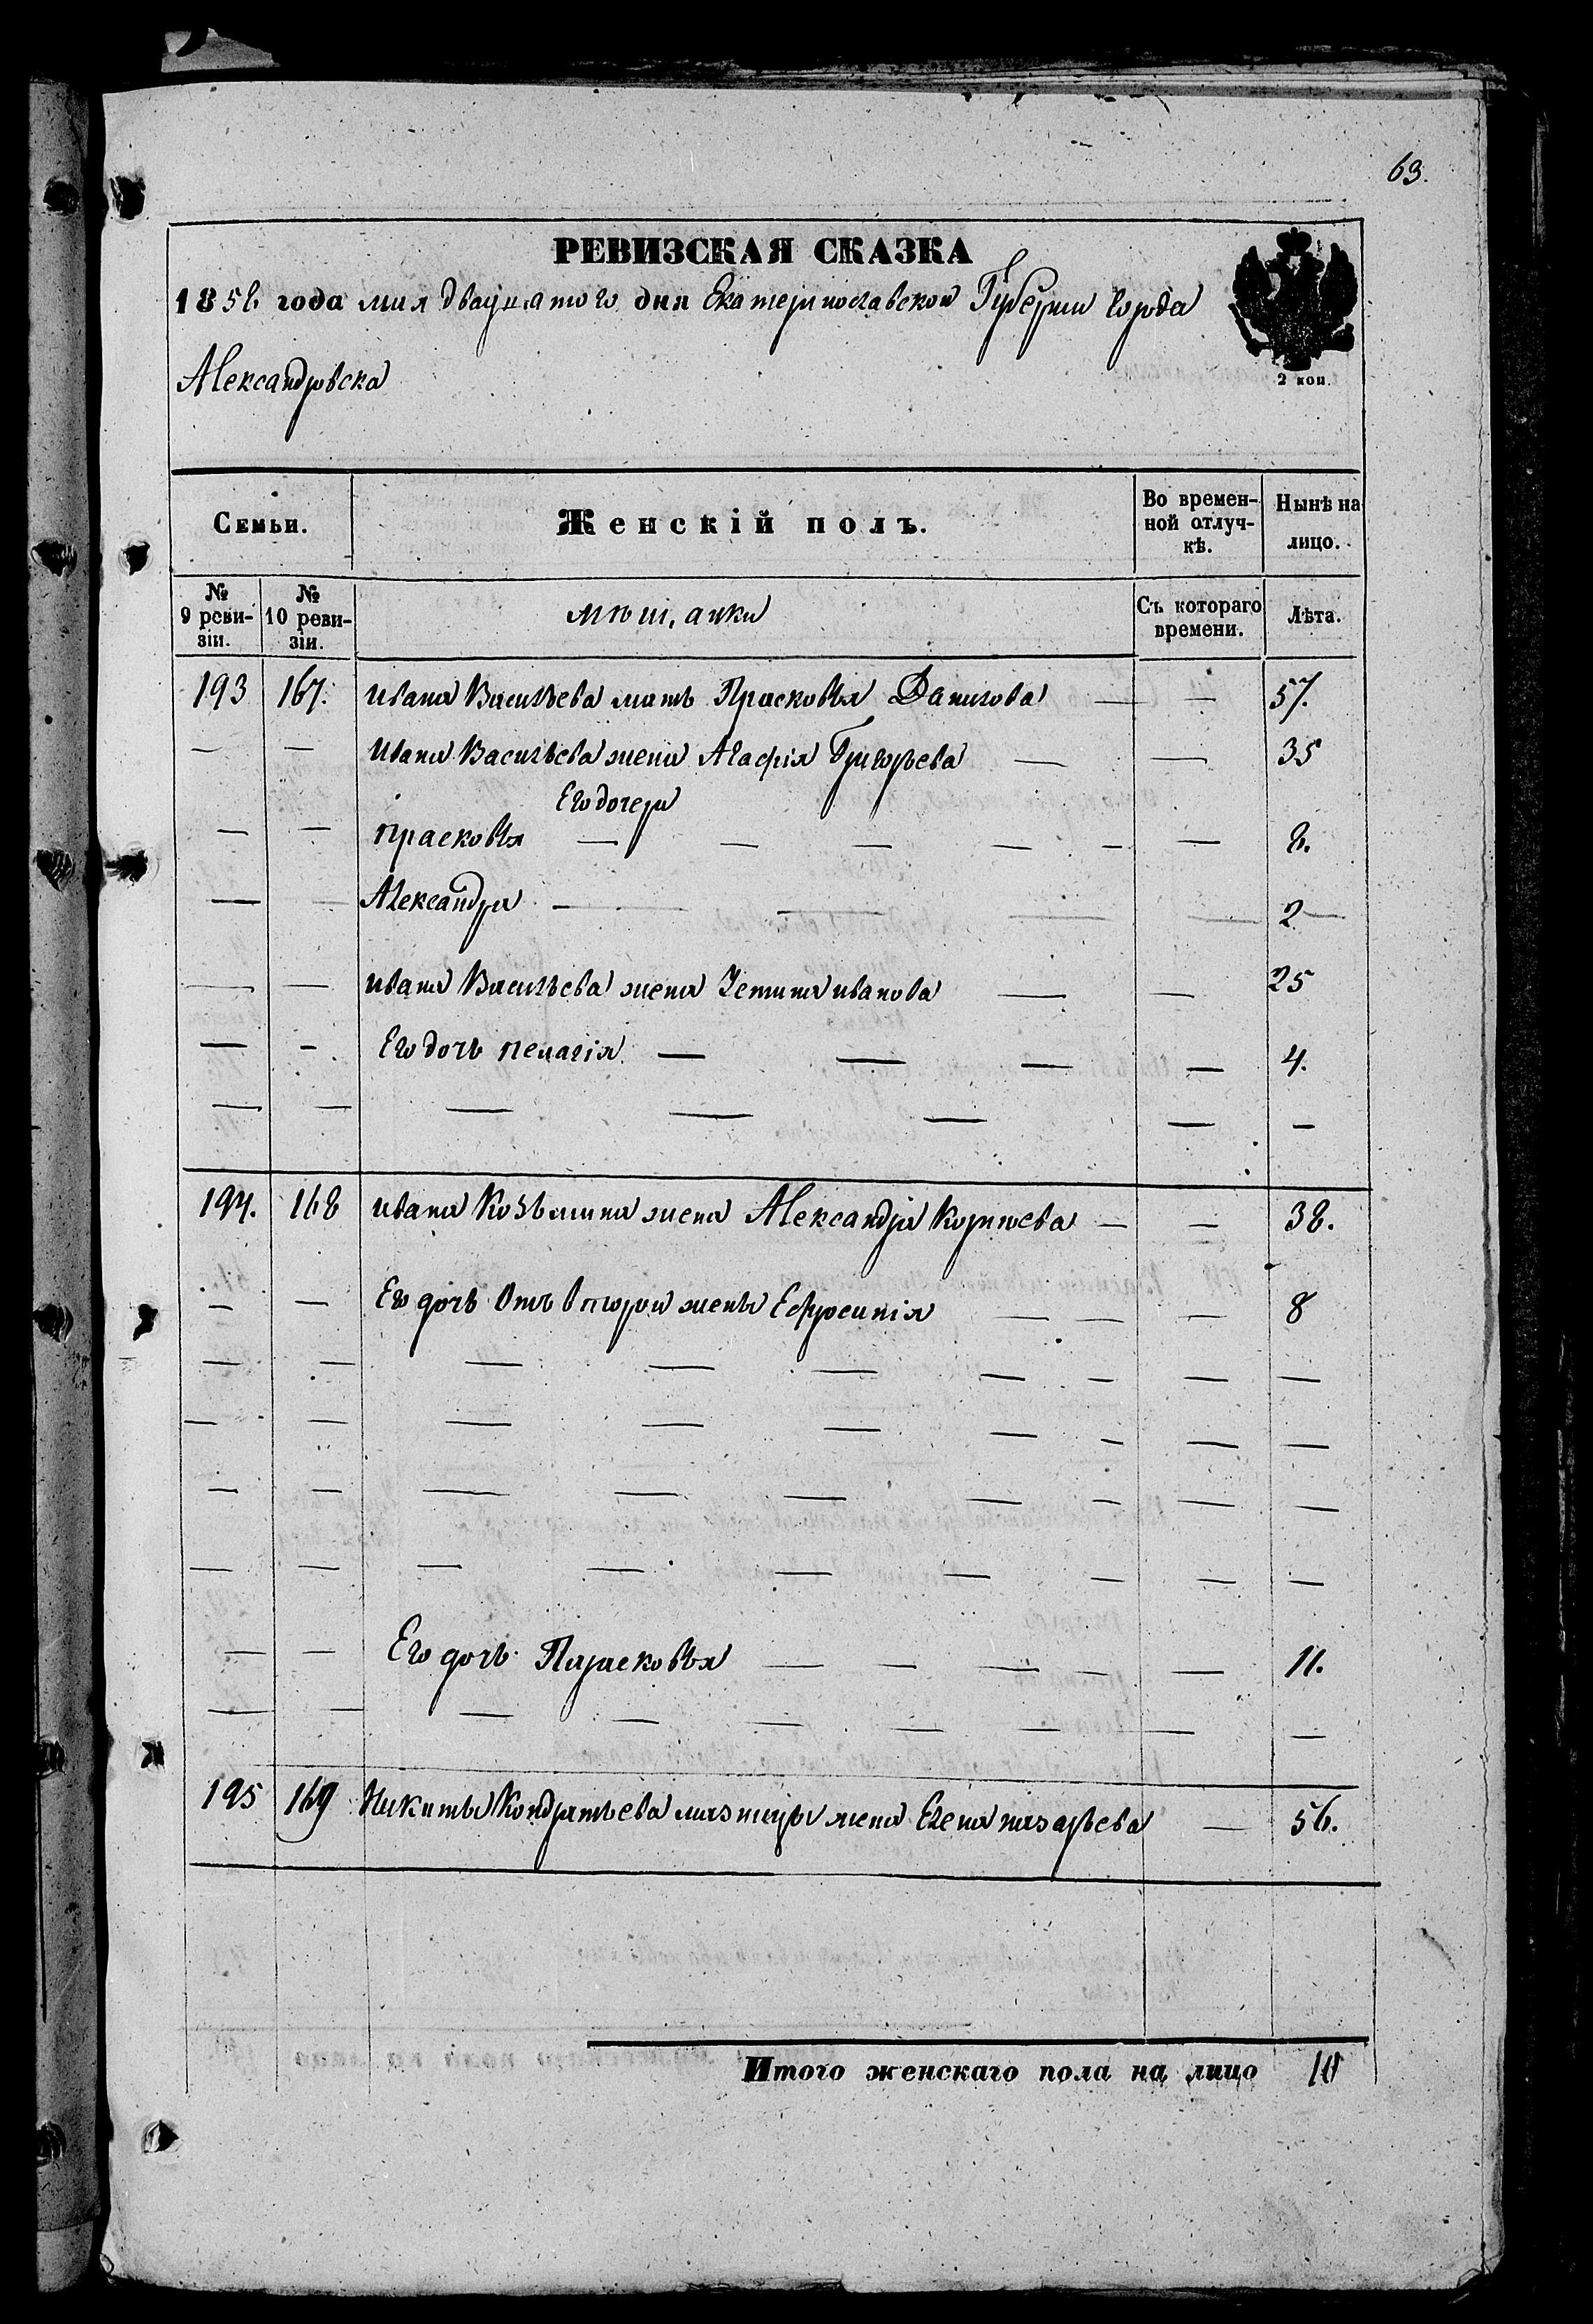 63.
РЕВИЗСКАЯ СКАЗКА
1856 года мая двадцатого дня Екатеринославской Губернии города
Александровска
2 коп.
Семьи.
Женскій полъ.
Во времен-
ной отлуч-
кѣ.
Нынѣ на
лицо.
№
9 реви-
зіи.
№
10 реви-
зіи.
мѣщанки
Съ котораго
времени.
Лѣта.
193 167. Ивана Васильева мать Прасковья Данилова — — 57.
— — Ивана Васильева жена Агафія Григорьева — — 35
Его дочери
— — Прасковья — — — — — — 8.
— — Александра — — — — 2
— — Ивана Васильева жена Устина Иванова — — 25
— — Его дочь Пелагія — — — — 4.
— — — — — — —
194. 168 Ивана Козьмина жена Александра Корнѣева — — 38.
— — Его дочь отъ второй жены Ефросинія — — — 8
— — — — — — — — —
— — — — — — — — —
— — — — — — — — —
— — — — — — — — —
— — Его дочь Парасковья — — — — — 11.
— — — — — — — — —
195 169 Никиты Кондратьева жена Елена Назарьева — 56.
Итого женскаго пола на лицо 10